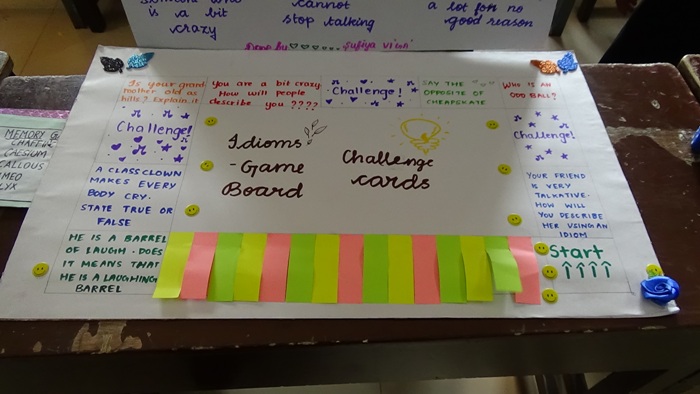 is a bit
crazy
cannot
stop talking
a lot for no
good reason
Done by
Is your grand
mother old as
hills? Explain it
You are a bit crazy
How will people
describe you ????
Challenge!
SAY THE "O"
OPPOSITE OF
CHEAPSKATE
WHO IS AN
ODD BALL?
Challenge!
Idioms
-Game
Board
Challenge
cards
Challenge!
A CLASS CLOWN
MAKES EVERY
BODY CRY.
STATE TRUE OR
FALSE
YOUR FRIEND
IS VERY
TALKATIVE.
HOW WILL
YOU DESCRIBE
HER USING AN
IDIOM
HE IS A BARREL
OF LAUGH. DOES
IT MEANS THAT
HE IS A LAUGHING
BARREL
Start
MEMORY
CALCIUM
CALLOUS